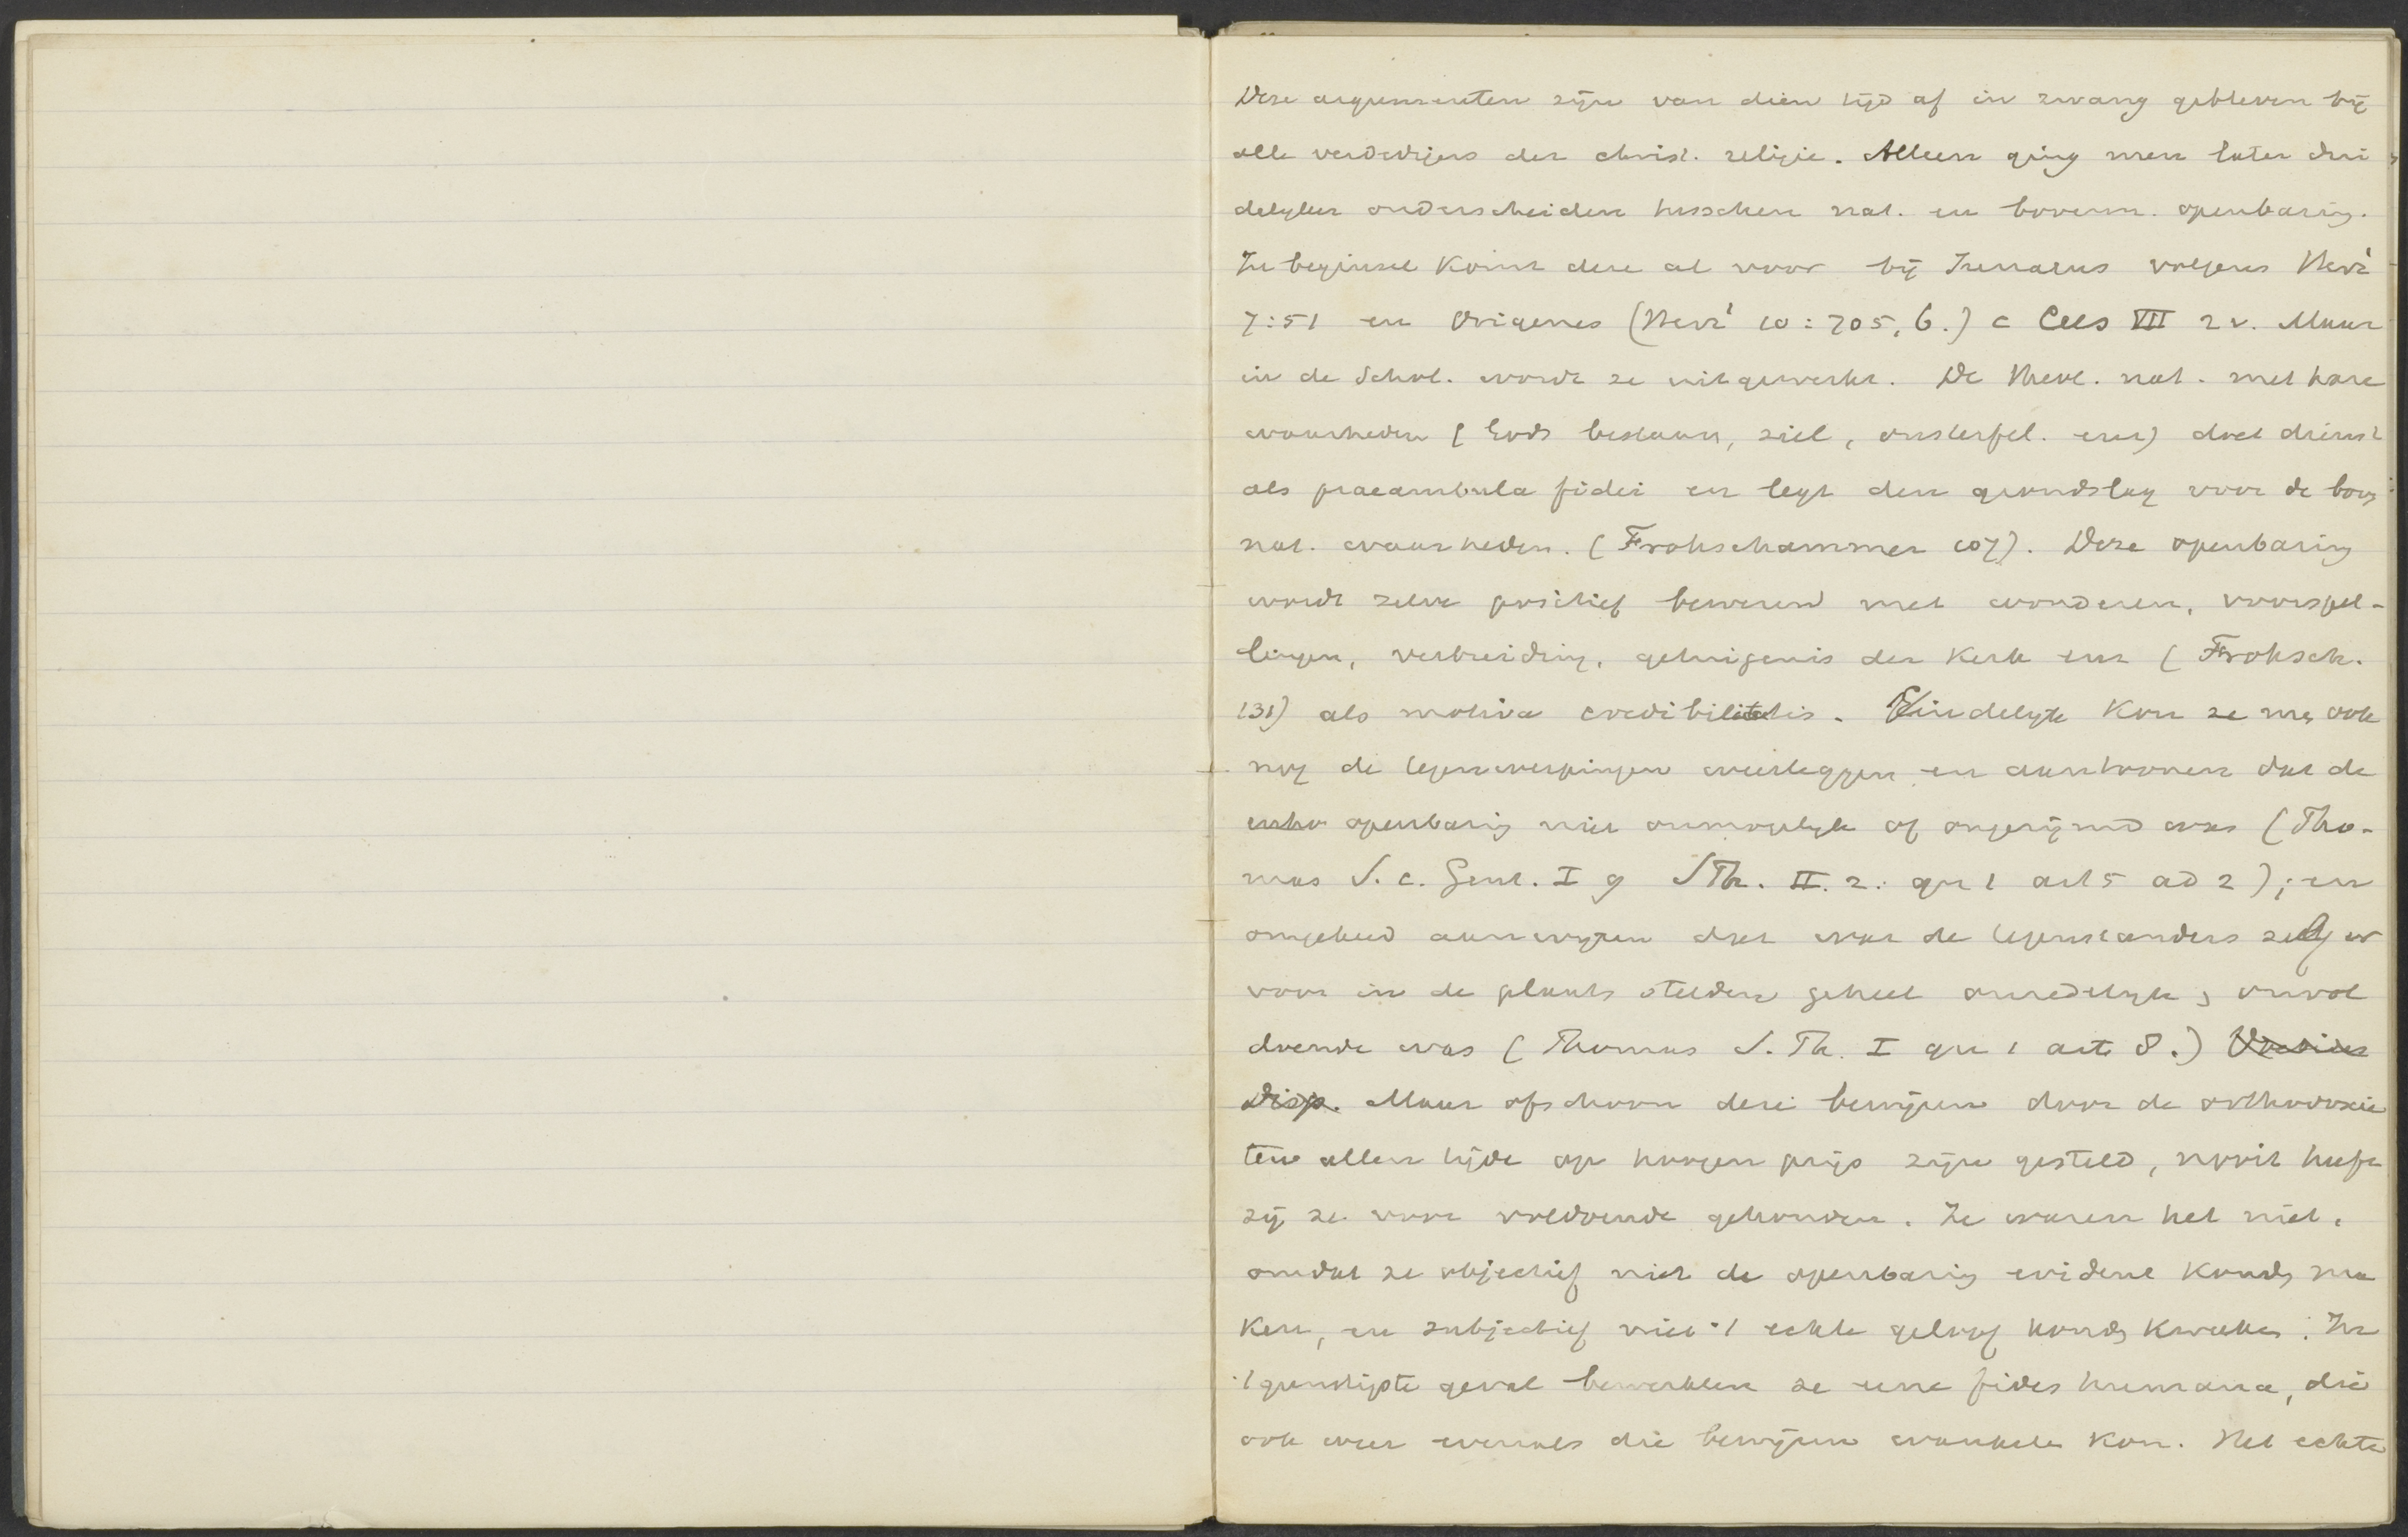 Deze argumenten zijn van dien tijd af in zwang gebleven bij
alle verdedigers der christ. religie. Alleen ging men later dui
delyker onderscheiden tusschen nat. en bovenn. openbaring.
In beginsel komt deze al voor bij Irenaeus volgens Herz'
7:51 en Origenes (Herz' 10:705,6.) c Cels VII 2 v. Maar
in de Schol. wordt ze uitgewerkt. De theol. nat. met hare
waarheden (Gods bestaan, ziel, onsterfel. enz) doet dienst
als praeambula fidei en legt den grondslag voor de bov
nat. waarheden. (Frohschammer 107). Deze openbaring
wordt zelve positief bewezen met wonderen, voorspel-
lingen, verbreiding, getuigenis der Kerk enz (Frohsch.
131) als motiva credibilitatis. Eindelyk kon ze ook
nog de tegenwerpingen weerleggen en aantoonen dat de
openbaring niet onmogelyk of ongerijmd was (Tho-
mas S. c. Gent. I 9 S Th. II. 2. qu 1 art 5 ad 2); en
omgekeerd aanwyzen dat wat de tegenstanders zelf er
voor in de plaats stelden geheel onredelyk, onvol
doende was (Thomas S. Th. I qu 1 art 8.) Voetius
Disp. Maar ofschoon deze bewijzen door de orthodoxie
ten allen tijde op hoogen prijs zijn gesteld, nooit heeft
zij ze voor voldoende gehouden. Ze waren het niet,
omdat ze objectief niet de openbaring evident konden ma
ken, en subjectief niet 't echte geloof konden kweeken. In
't gunstigste geval bewerkten ze eene fides humana, die
ook weer evenals die bewijzen wankelen kon. Het echte